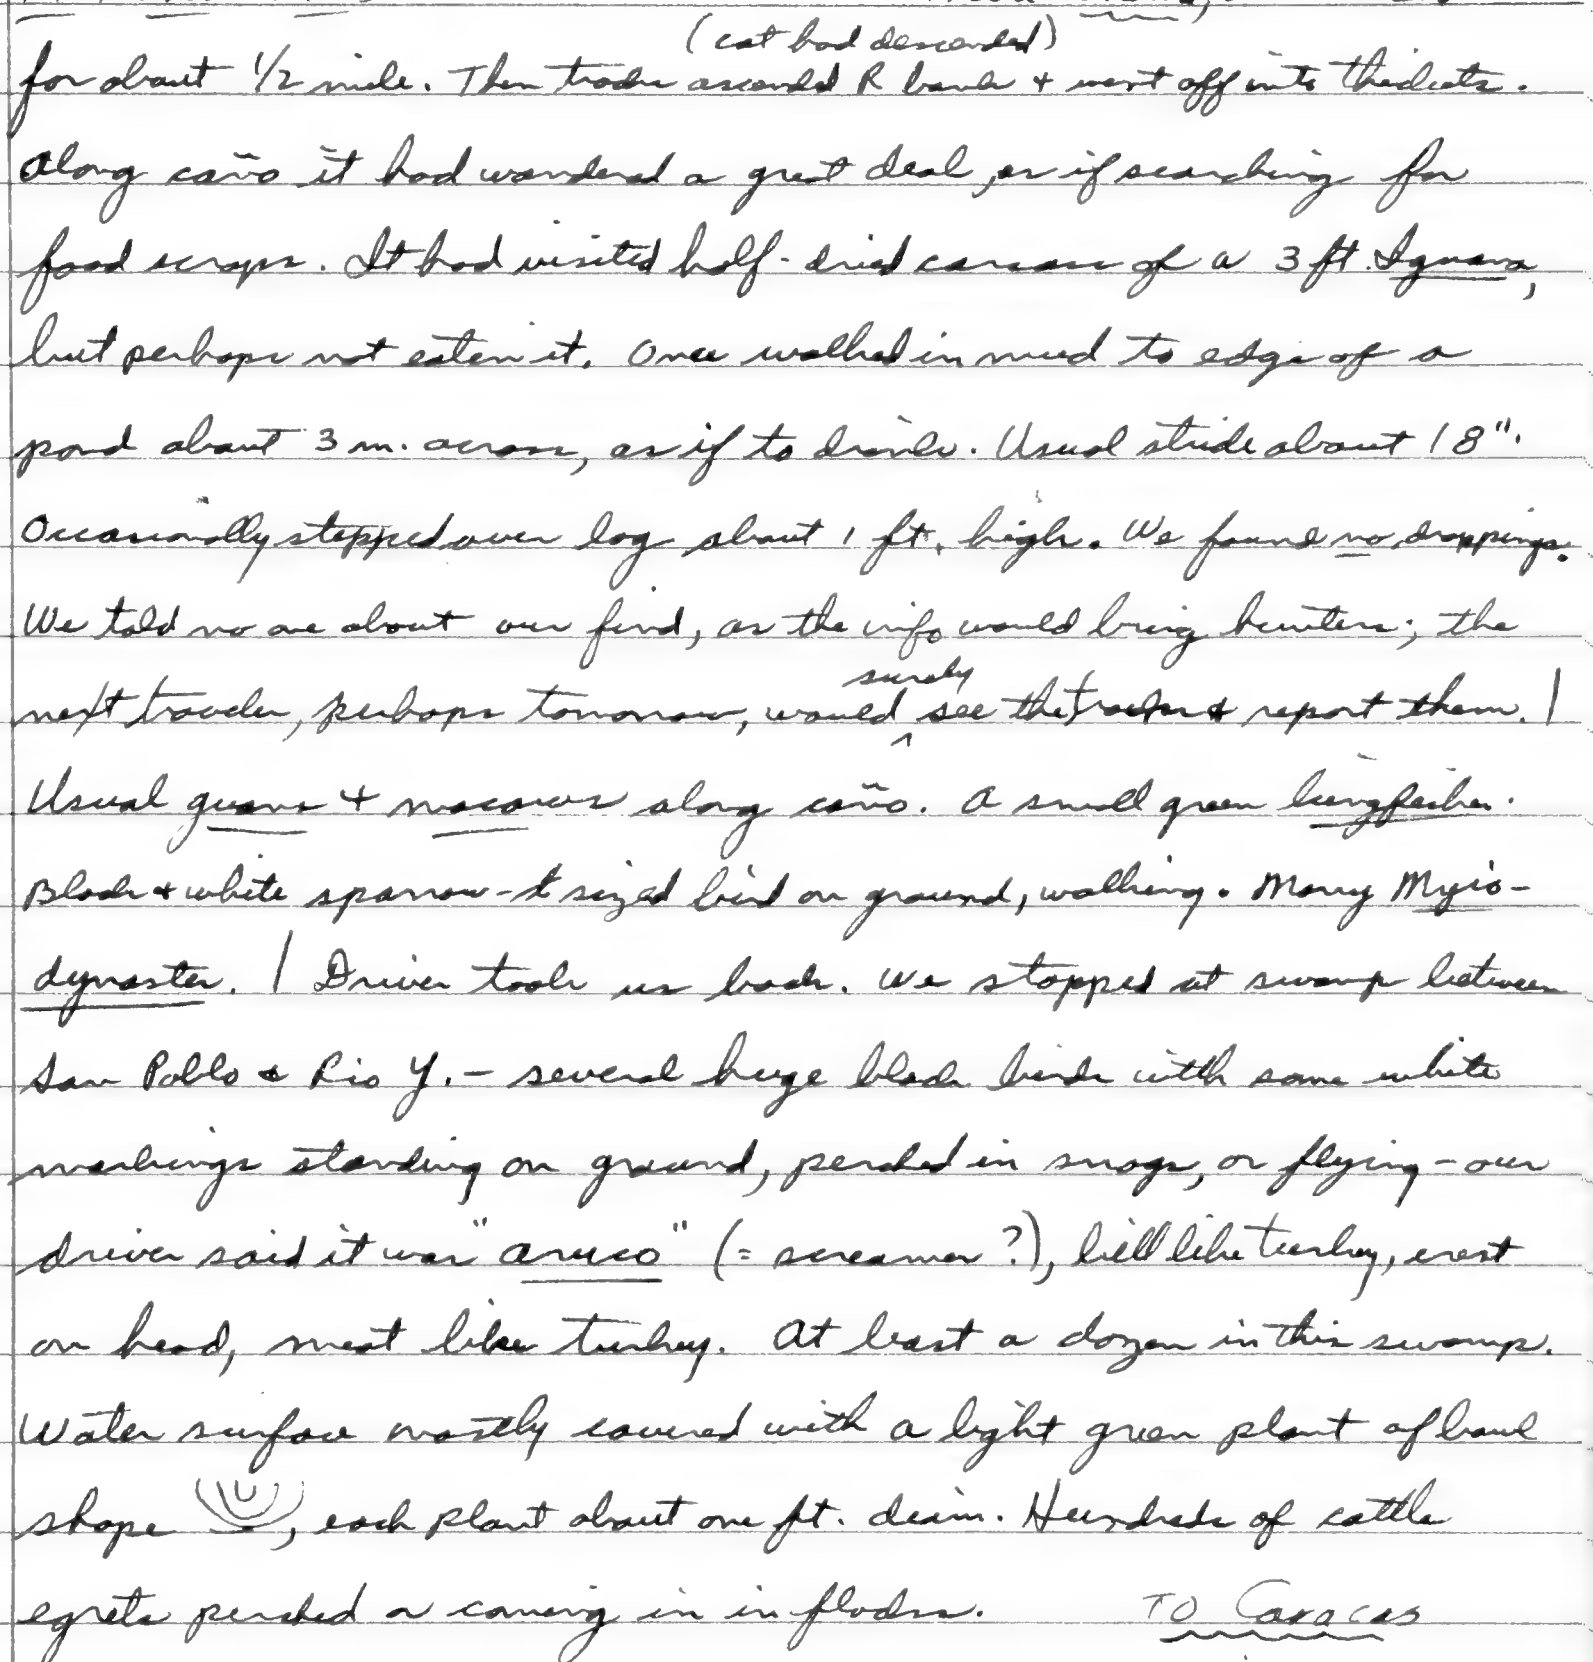 (cat had descended)
for about 1/2 mile. Then tracks ascended R bank + went off into thickets.
Along caño it had wandered a great deal, as if searching for
food scraps. It had visited half-dried carcass of a 3 ft. Iguana,
but perhaps not eaten it. Once walked in mud to edge of a
pond about 3 m. across, as if to drink. Usual stride about 18".
Occasionally stepped over log about 1 ft. high. We found no droppings.
We told no one about our find, as the info would bring hunters; the
surely
next traveler, perhaps tomorrow, would ^ see the tracks & report them. |
Usual guans + macaws along caño. A small green kingfisher.
Black + white sparrow-sized bird on ground, walking. Many Myio-
dynastes. | Driver took us back. We stopped at swamp between
San Pablo & Rio Y. - several huge black birds with some white
markings standing on ground, perched in snags, or flying - our
driver said it was "aruco" (= screamer?), bill like turkey, crest
on head, meat like turkey. At least a dozen in this swamp.
Water surface mostly covered with a light green plant of bowl
shape , each plant about one ft. diam. Hundreds of cattle
egrets perched or coming in in flocks. TO Caracas